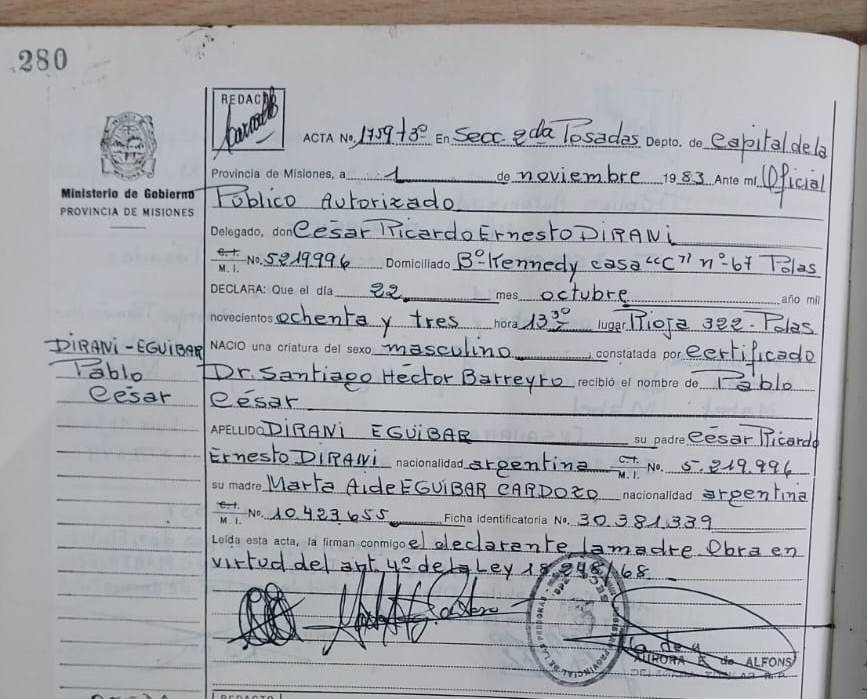 280
REDACTO
ACTA No. 1759 t3º En Secc 2da Posadas Depto. de Capital de la
Provincia de Misiones, a 1 de noviembre 1983 Ante mí Oficial
Ministerio de Gobierno
PROVINCIA DE MISIONES
Público Autorizado
Delegado, don César Ricardo Ernesto DIRANI
C.I. M.I. No. 5219996 Domiciliado Bº Kennedy casa "C" nº 67 Pdas
DECLARA: Que el día 22 mes octubre año mil
novecientos ochenta y tres hora 13 30 lugar Rioja 322 - Pdas.
DIRANI - EGUIBAR
Pablo
César
NACIO una criatura del sexo masculino constatada por certificado
Dr. Santiago Héctor Barreyro recibió el nombre de Pablo
César
APELLIDO DIRANI EGUIBAR su padre César Ricardo
Ernesto DIRANI nacionalidad argentina C.I. M.I. No. 5.219.996
su madre Marta Aide EGUIBAR CARDOZO nacionalidad argentina
C.I. M.I. No. 10.423.655 Ficha identificatoria No. 30.381.339
Leída esta acta, la firman conmigo el declarante, la madre. Obra en
virtud del art. 4º de la Ley 18.248/68.
AURORA E. de ALFONS